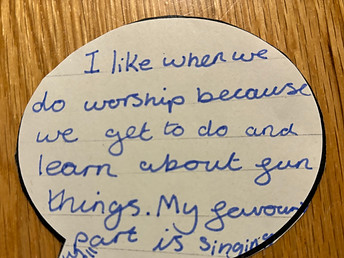 I like when we
do worship because
we get to do and
learn about fun
things. My favouri
part is singing